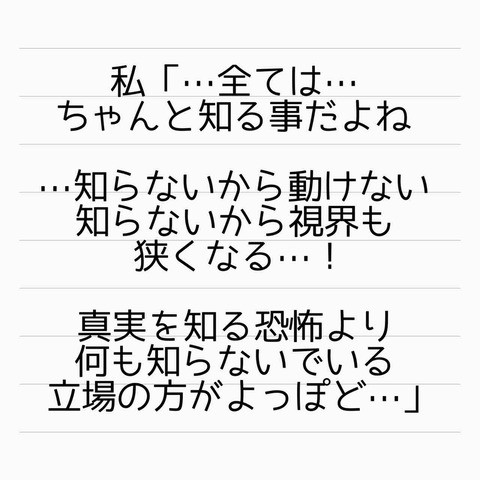 私「…全ては…
ちゃんと知る事だよね
…知らないから動けない
知らないから視界も
狭くなる…！
真実を知る恐怖より
何も知らないでいる
立場の方がよっぽど…」